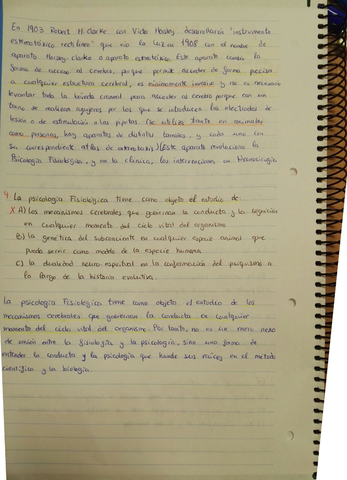 En 1903 Robert H. Clarke, con Victor Horsley, desarrollaría "instrumento
estereotáxico rectilíneo" que vio la luz en 1908 con el nombre de
aparato Horsley-Clarke o aparato estereotáxico. Este aparato cambia la
forma de acceso al cerebro, porque permite acceder de forma precisa
a cualquier estructura cerebral, es mínimamente invasivo y no es necesario
levantar toda la bóveda craneal para acceder al cerebro porque con un
torno se realizan agujeros por los que se introducen los electrodos de
lesión o de estimulación o las pipetas. (Se utiliza tanto en animales
como personas, hay aparatos de distintos tamaños, y cada uno con
su correspondiente atlas de estereotaxis) (Este aparato revoluciona la
Psicología Fisiológica, y en la clínica, las intervenciones en Neurocirugía
4. La psicología Fisiológica tiene como objeto el estudio de:
X A) los mecanismos cerebrales que gobiernan la conducta y la cognición
en cualquier momento del ciclo vital del organismo
B) la genética del subconsciente en cualquier especie animal que
pueda servir como modelo de la especie humana
C) la dualidad neuro-espiritual en la conformación del psiquismo a
lo largo de la historia evolutiva.
La psicología Fisiológica tiene como objeto el estudio de los
mecanismos cerebrales que gobiernan la conducta en cualquier
momento del ciclo vital del organismo. Por tanto, no es un mero nexo
de unión entre la fisiología y la psicología, sino una forma de
entender la conducta y la psicología que hunde sus raíces en el método
científico y la biología.